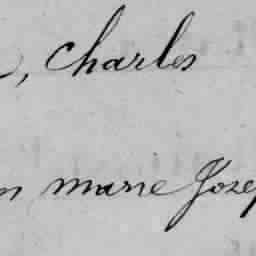 , Charles
marie Josep